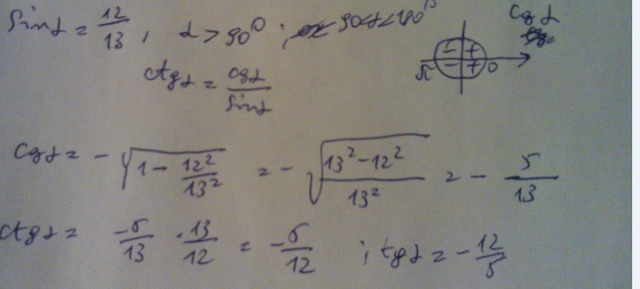 sin α = 12/13 , α > 90° ; 90<α<180° cos α
- + π - + 0
ctg α = cos α / sin α
cos α = - √(1 - 12²/13²) = - √((13² - 12²)/13²) = - 5/13
ctg α = -5/13 · 13/12 = -5/12 ; tg α = - 12/5